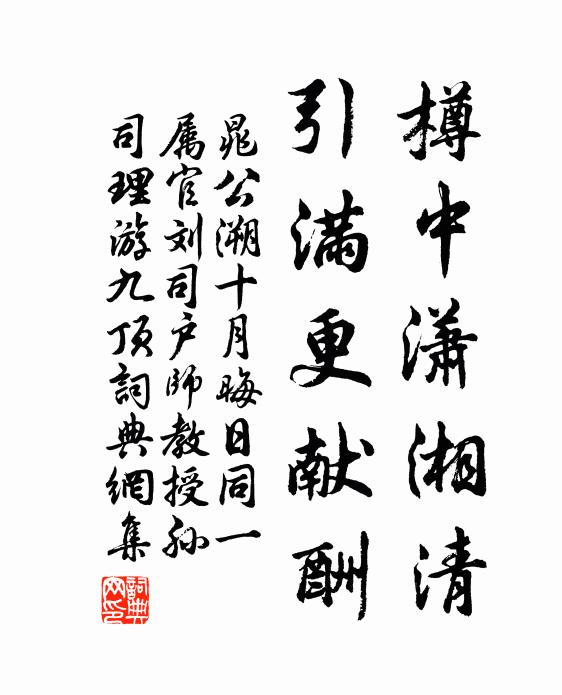 樽中潇湘清
引满更献酬
晁公溯十月晦日同一
属官刘司户师教授孙
司理游九顶詞典網集
詞典网印